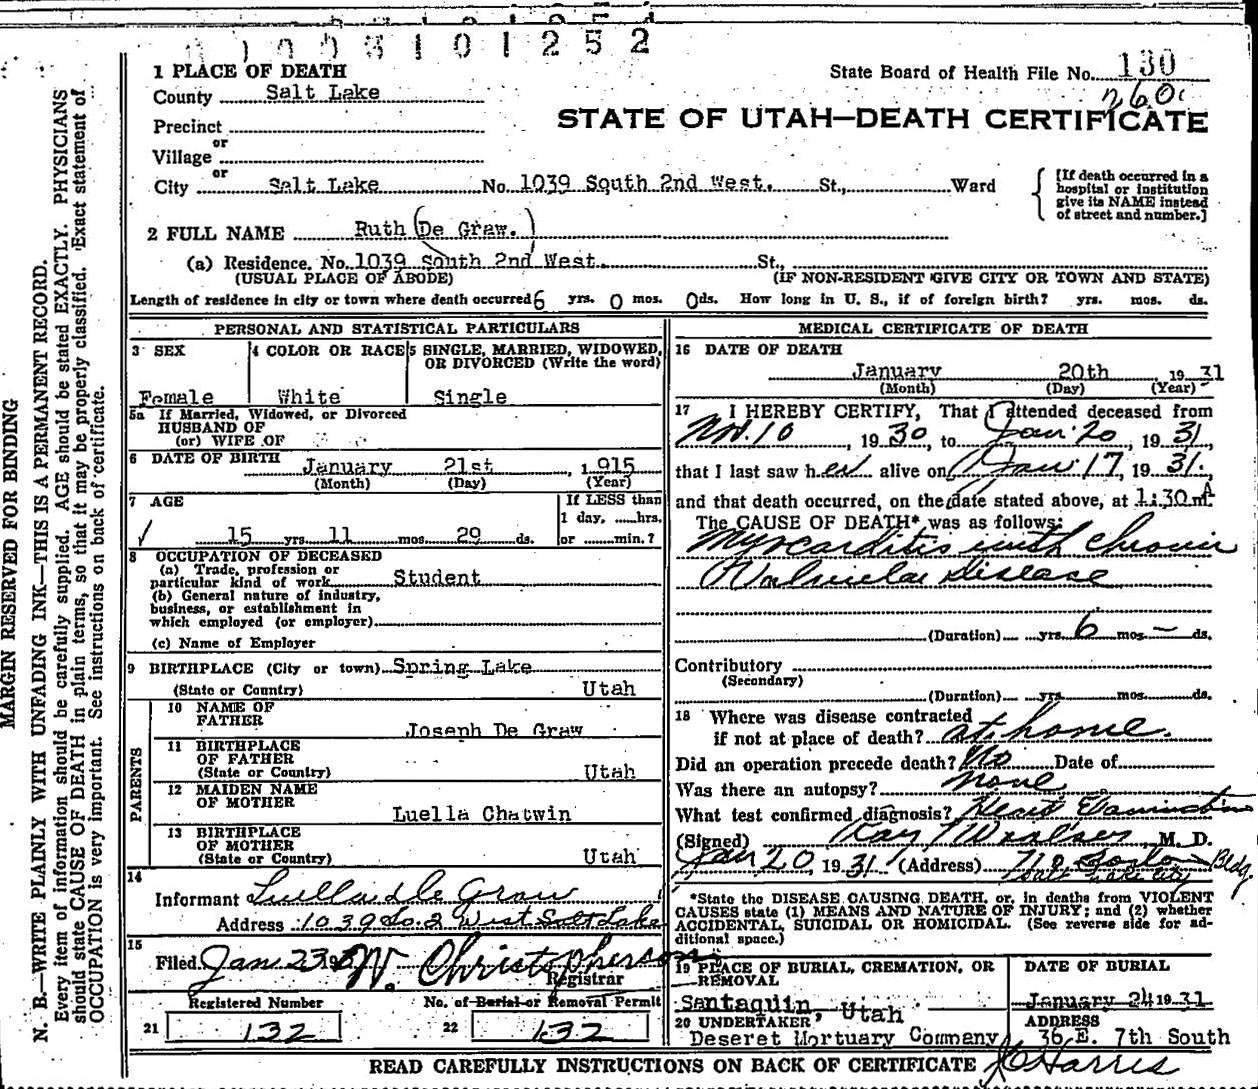 1003101252
1 PLACE OF DEATH
State Board of Health File No. 130
County Salt Lake
260
STATE OF UTAH—DEATH CERTIFICATE
Precinct
or
Village
or
City Salt Lake No. 1039 South 2nd West. St., Ward
[If death occurred in a hospital or institution give its NAME instead of street and number.]
2 FULL NAME Ruth (De Graw.)
(a) Residence. No. 1039 South 2nd West. St.,
(USUAL PLACE OF ABODE) (IF NON-RESIDENT GIVE CITY OR TOWN AND STATE)
Length of residence in city or town where death occurred 6 yrs. 0 mos. 0 ds. How long in U. S., if of foreign birth? yrs. mos. ds.
PERSONAL AND STATISTICAL PARTICULARS
3 SEX
Female
4 COLOR OR RACE
White
5 SINGLE, MARRIED, WIDOWED, OR DIVORCED (Write the word)
Single
5a If Married, Widowed, or Divorced
HUSBAND OF
(or) WIFE OF
6 DATE OF BIRTH January 21st, 1915
(Month) (Day) (Year)
7 AGE
15 yrs. 11 mos. 29 ds.
If LESS than
1 day, hrs.
or min.?
8 OCCUPATION OF DECEASED
(a) Trade, profession or
particular kind of work Student
(b) General nature of industry,
business, or establishment in
which employed (or employer)
(c) Name of Employer
9 BIRTHPLACE (City or town) Spring Lake
(State or Country) Utah
PARENTS
10 NAME OF
FATHER Joseph De Graw
11 BIRTHPLACE
OF FATHER
(State or Country) Utah
12 MAIDEN NAME
OF MOTHER Luella Chatwin
13 BIRTHPLACE
OF MOTHER
(State or Country) Utah
14
Informant Luella de Graw
Address 1039 So. 2 West Salt Lake
15
Filed Jan 23 193 W. Christopherson
Registrar
Registered Number No. of Burial or Removal Permit
21 132 22 132
MEDICAL CERTIFICATE OF DEATH
16 DATE OF DEATH
January 20th, 1931
(Month) (Day) (Year)
17 I HEREBY CERTIFY, That I attended deceased from
Nov. 10, 1930, to Jan 20, 1931
that I last saw her alive on Jan 17, 1931.
and that death occurred, on the date stated above, at 1:30 A m.
The CAUSE OF DEATH* was as follows:
Myocarditis with Chronic
Valvular Disease
(Duration) yrs. 6 mos — ds.
Contributory
(Secondary)
(Duration) yrs. mos. ds.
18 Where was disease contracted
if not at place of death? at home.
Did an operation precede death? No Date of
Was there an autopsy? none
What test confirmed diagnosis? Heart Examination
(Signed) Ray M. D.
Jan 20, 1931 (Address) Boston Bldg.
Salt Lake City
*State the DISEASE CAUSING DEATH, or, in deaths from VIOLENT
CAUSES state (1) MEANS AND NATURE OF INJURY; and (2) whether
ACCIDENTAL, SUICIDAL OR HOMICIDAL. (See reverse side for ad-
ditional space.)
19 PLACE OF BURIAL, CREMATION, OR REMOVAL
Santaquin, Utah
DATE OF BURIAL
January 24 1931
20 UNDERTAKER
Deseret Mortuary Commany
ADDRESS
36 E. 7th South
J C Harris
READ CAREFULLY INSTRUCTIONS ON BACK OF CERTIFICATE
MARGIN RESERVED FOR BINDING
N. B.—WRITE PLAINLY WITH UNFADING INK—THIS IS A PERMANENT RECORD.
Every item of information should be carefully supplied. AGE should be stated EXACTLY. PHYSICIANS
should state CAUSE OF DEATH in plain terms, so that it may be properly classified. Exact statement of
OCCUPATION is very important. See instructions on back of certificate.